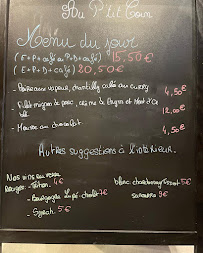 Au P'tit Coin
Menu du jour
(E+P+café ou P+D+café) 15,50€
(E+P+D+café) 20,50€
- Poireaux vapeur, chantilly au curry 4,50€
- Filet mignon de porc, crème de et Mont d'Or 12,00€
- Mousse au chocolat 4,50€
Autres suggestions à l'intérieur.
Nos vins au verre
Rouges: 4€
blanc chardonnay 5€
- Bourgogne 7€
9€
- Syrah 5€